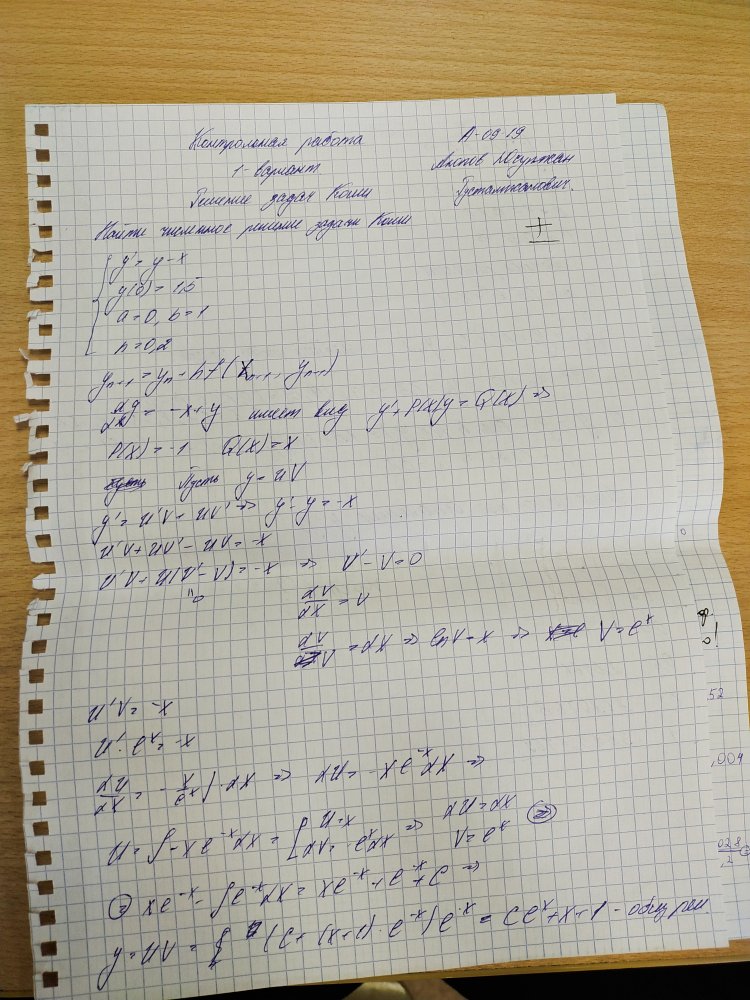 Контрольная работа
А-09-19
1-вариант
Решение задач Коши
Найти численное решение задачи Коши
+
y' = y - x
y(0) = 1,5
a = 0, b = 1
h = 0,2
y_{n+1} = y_n + h f(x_{n+1}, y_{n+1})
dy/dx = -x+y имеет вид y' + P(x)y = Q(x) =>
P(x) = -1 Q(x) = x
Пусть y = uV
y' = u'V + uV' => y' - y = -x
u'V + uV' - uV = -x
u'V + u(V' - V) = -x => V' - V = 0
"0
dV/dx = V
dV/V = dx => lnV = x => V = e^x
u'V = -x
u' · e^x = -x
du/dx = - x/e^x | · dx => du = -xe^{-x}dx =>
u = ∫ -xe^{-x}dx = { u = x dV = e^x dx => du = dx V = e^x (=)
(=) xe^{-x} - ∫e^{-x}dx = xe^{-x} + e^{-x} + C =>
y = uV = (C + (x+1) · e^{-x}) e^x = Ce^x + x + 1 - общ реш.
0
52
,004
028
,2